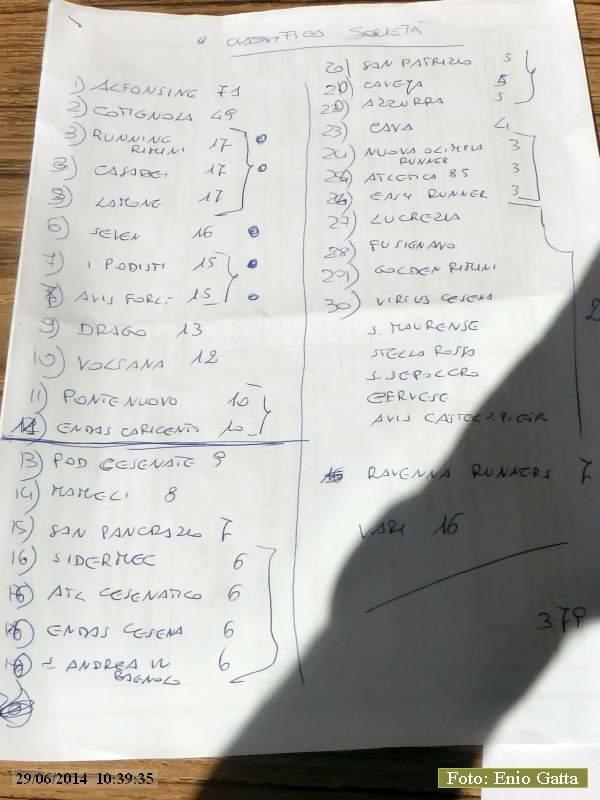 CLASSIFICA SOCIETÀ
1) ALFONSINE 71
2) COTIGNOLA 49
3) RUNNING
RIMINI 17
3) CASADEI 17
3) LAMONE 17
6) SEVEN 16
7) I PODISTI 15
AVIS FORLÌ 15
9) DRAGO 13
10) VOLSANA 12
11) PONTENUOVO 10
11) ENDAS CORICENTO 10
13) POD CESENATE 9
14) MAMELI 8
15) SAN PANCRAZIO 7
16) SIDERMEC 6
16) ATL CESENATICO 6
16) ENDAS CESENA 6
S. ANDREA IN
BAGNOLO 6
20) SAN PATRIZIO 5
20) CAVEJA 5
20) AZZURRA 5
23) CAVA 4
24) NUOVA OLIMPIA
RUNNER 3
24) ATLETICA 85 3
24) EASY RUNNER 3
27) LUCREZIA
28) FUSIGNANO
29) GOLDEN RIMINI
30) VIRTUS CESENA
S. MAURENSE
STELLA ROSSA
S. SEPOLCRO
CERVESE
AVIS CASTEL S. PIETR
2
RAVENNA RUNNERS 7
VARI 16
379
29/06/2014 10:39:35
Foto: Enio Gatta